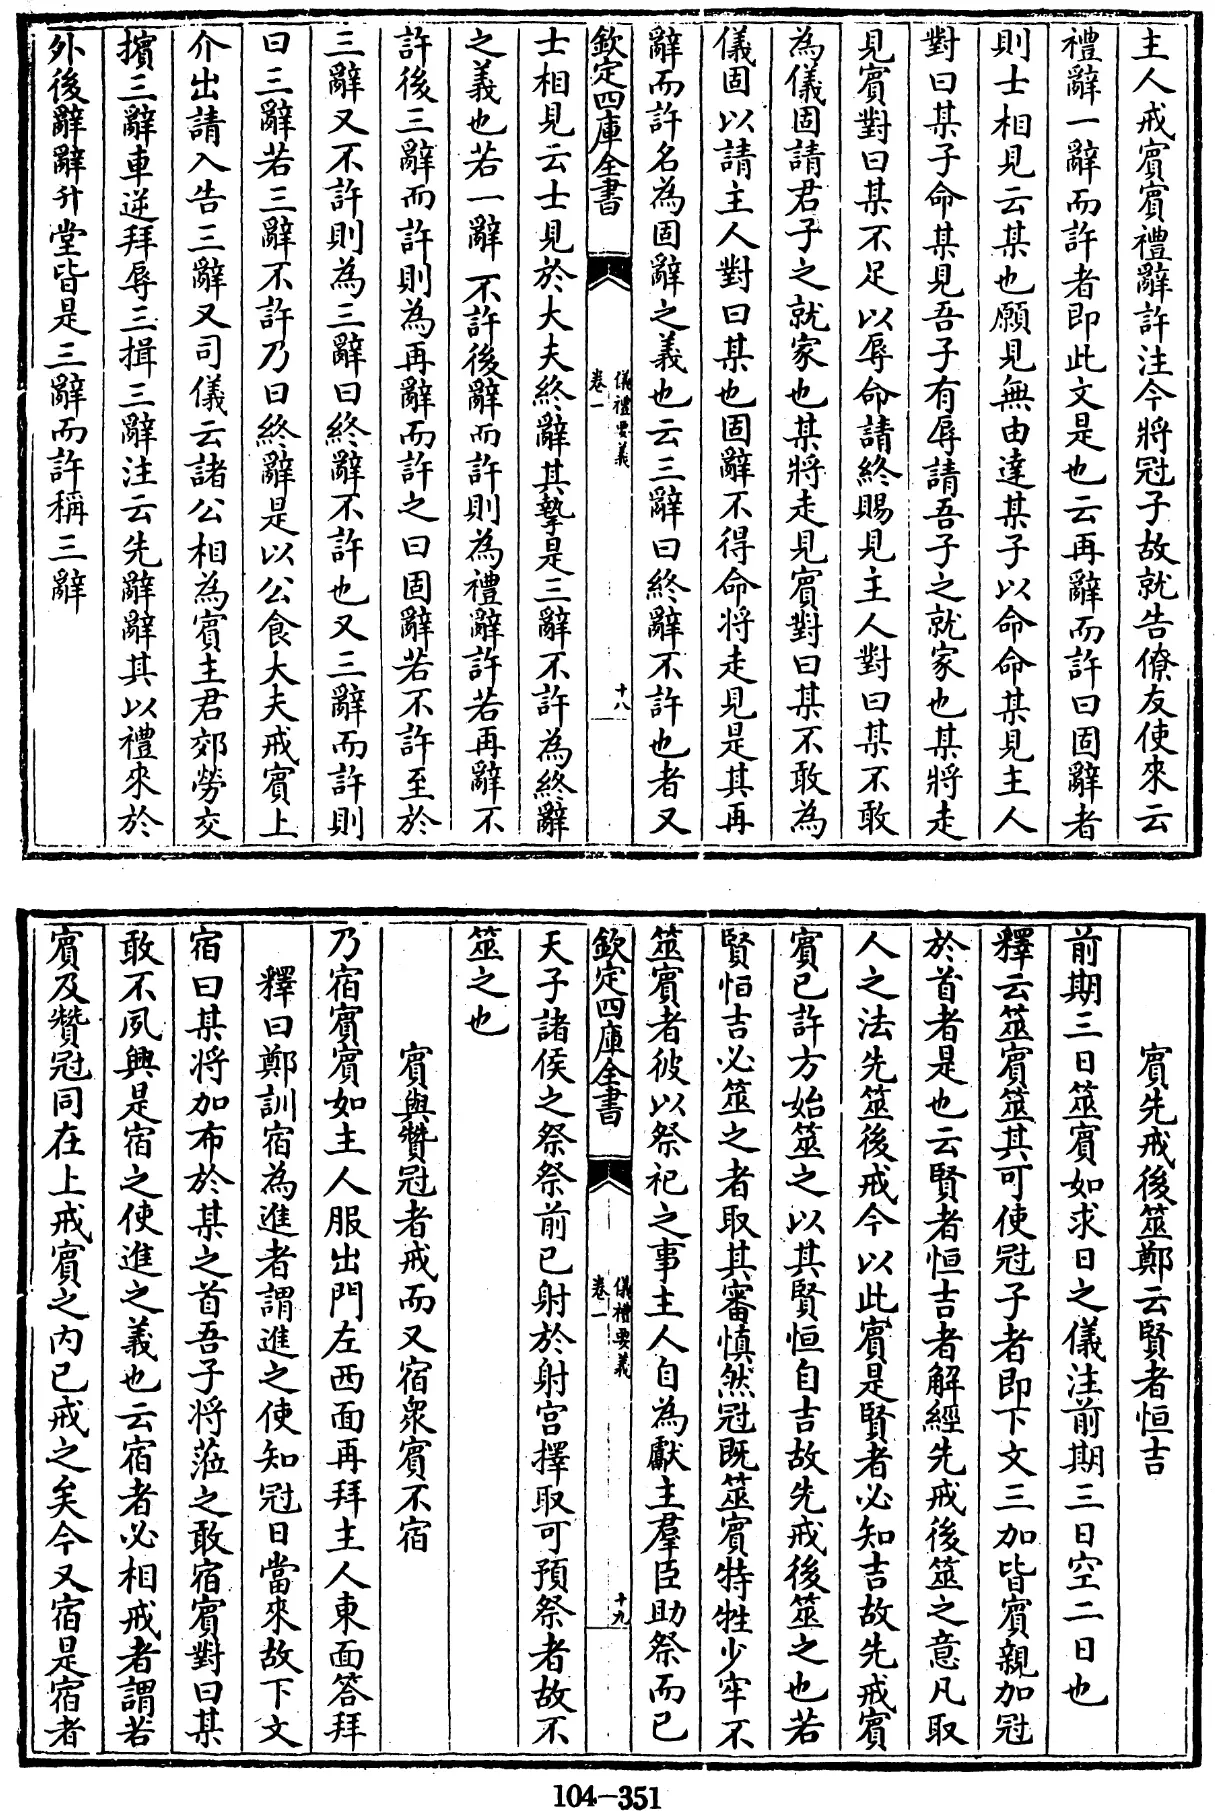 主人戒賓賓禮辭許注今將冠子故就告僚友使來云
禮辭一辭而許者即此文是也云再辭而許曰固辭者
則士相見云某也願見無由達某子以命命某見主人
對曰某子命某見吾子有辱請吾子之就家也某將走
見賓對曰某不足以辱命請終賜見主人對曰某不敢
為儀固請君子之就家也某將走見賓對曰某不敢為
儀固以請主人對曰某也固辭不得命將走見是其再
辭而許名為固辭之義也云三辭曰終辭不許也者又
欽定四庫全書
儀禮要義
卷一
十八
士相見云士見於大夫終辭其摯是三辭不許為終辭
之義也若一辭不許後辭而許則為禮辭許若再辭不
許後三辭而許則為再辭而許之曰固辭若不許至於
三辭又不許則為三辭曰終辭不許也又三辭而許則
曰三辭若三辭不許乃曰終辭是以公食大夫戒賓上
介出請入告三辭又司儀云諸公相為賓主君郊勞交
擯三辭車逆拜辱三揖三辭注云先辭辭其以禮來於
外後辭辭升堂皆是三辭而許稱三辭
賓先戒後筮鄭云賢者恒吉
前期三日筮賓如求日之儀注前期三日空二日也
釋云筮賓筮其可使冠子者即下文三加皆賓親加冠
於首者是也云賢者恒吉者解經先戒後筮之意凡取
人之法先筮後戒今以此賓是賢者必知吉故先戒賓
賓已許方始筮之以其賢恒自吉故先戒後筮之也若
賢恒吉必筮之者取其審慎然冠既筮賓特牲少牢不
筮賓者彼以祭祀之事主人自為獻主羣臣助祭而已
欽定四庫全書
儀禮要義
卷一
十九
天子諸侯之祭祭前已射於射宮擇取可預祭者故不
筮之也
賓與贊冠者戒而又宿衆賓不宿
乃宿賓賓如主人服出門左西面再拜主人東面答拜
釋曰鄭訓宿為進者謂進之使知冠日當來故下文
宿曰某將加布於某之首吾子將蒞之敢宿賓對曰某
敢不夙興是宿之使進之義也云宿者必相戒者謂若
賓及贊冠同在上戒賓之內已戒之矣今又宿是宿者
104-351